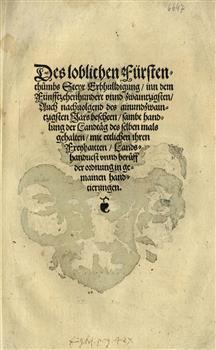 6667
Des loblichen Fürsten-
thůmbs Steyr Erbhuldigung / inn dem
Fünfftzehenhundert vnnd zwaintzigsten /
Auch nachuolgend des ainundzwain-
tzigsten Jars beschehen / sambt hand-
lung der Landtäg desselben mals
gehalten / mit etlichen iren
Freyhaitten / Lands-
handuest vnnd berüff
der ordnung in ge-
mainen hand-
tierungen.